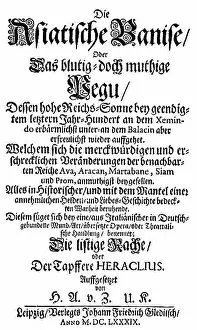 Die
Asiatische Banise/
Oder
Das blutig-doch muthige
Pegu/
Dessen hohe Reichs-Sonne bey geendig-
tem letztern Jahr-Hundert an dem Xemin-
do erbärmlichst unter-an dem Balacin aber
erfreulichst wieder auffgehet.
Welchem sich die merckwürdigen und er-
schrecklichen Veränderungen der benachbar-
ten Reiche Ava, Aracan, Martabane, Siam
und Prom, anmuthigst beygesellen.
Alles in Historischer/und mit dem Mantel einer
annehmlichen Helden- und Liebes-Geschichte bedeck-
ten Warheit beruhende.
Diesem füget sich bey eine/aus Italiänischer in Deutsch-
gebundene Mund-Art/übersetzte Opera/oder Theatrali-
sche Handlung/ benennet:
Die listige Rache/
oder
Der Tapffere HERACLIUS.
Auffgesetzet
von
H. A. v. Z. U. K.
Leipzig/ Verlegts Johann Friedrich Gleditsch/
ANNO M. DC. LXXXIX.